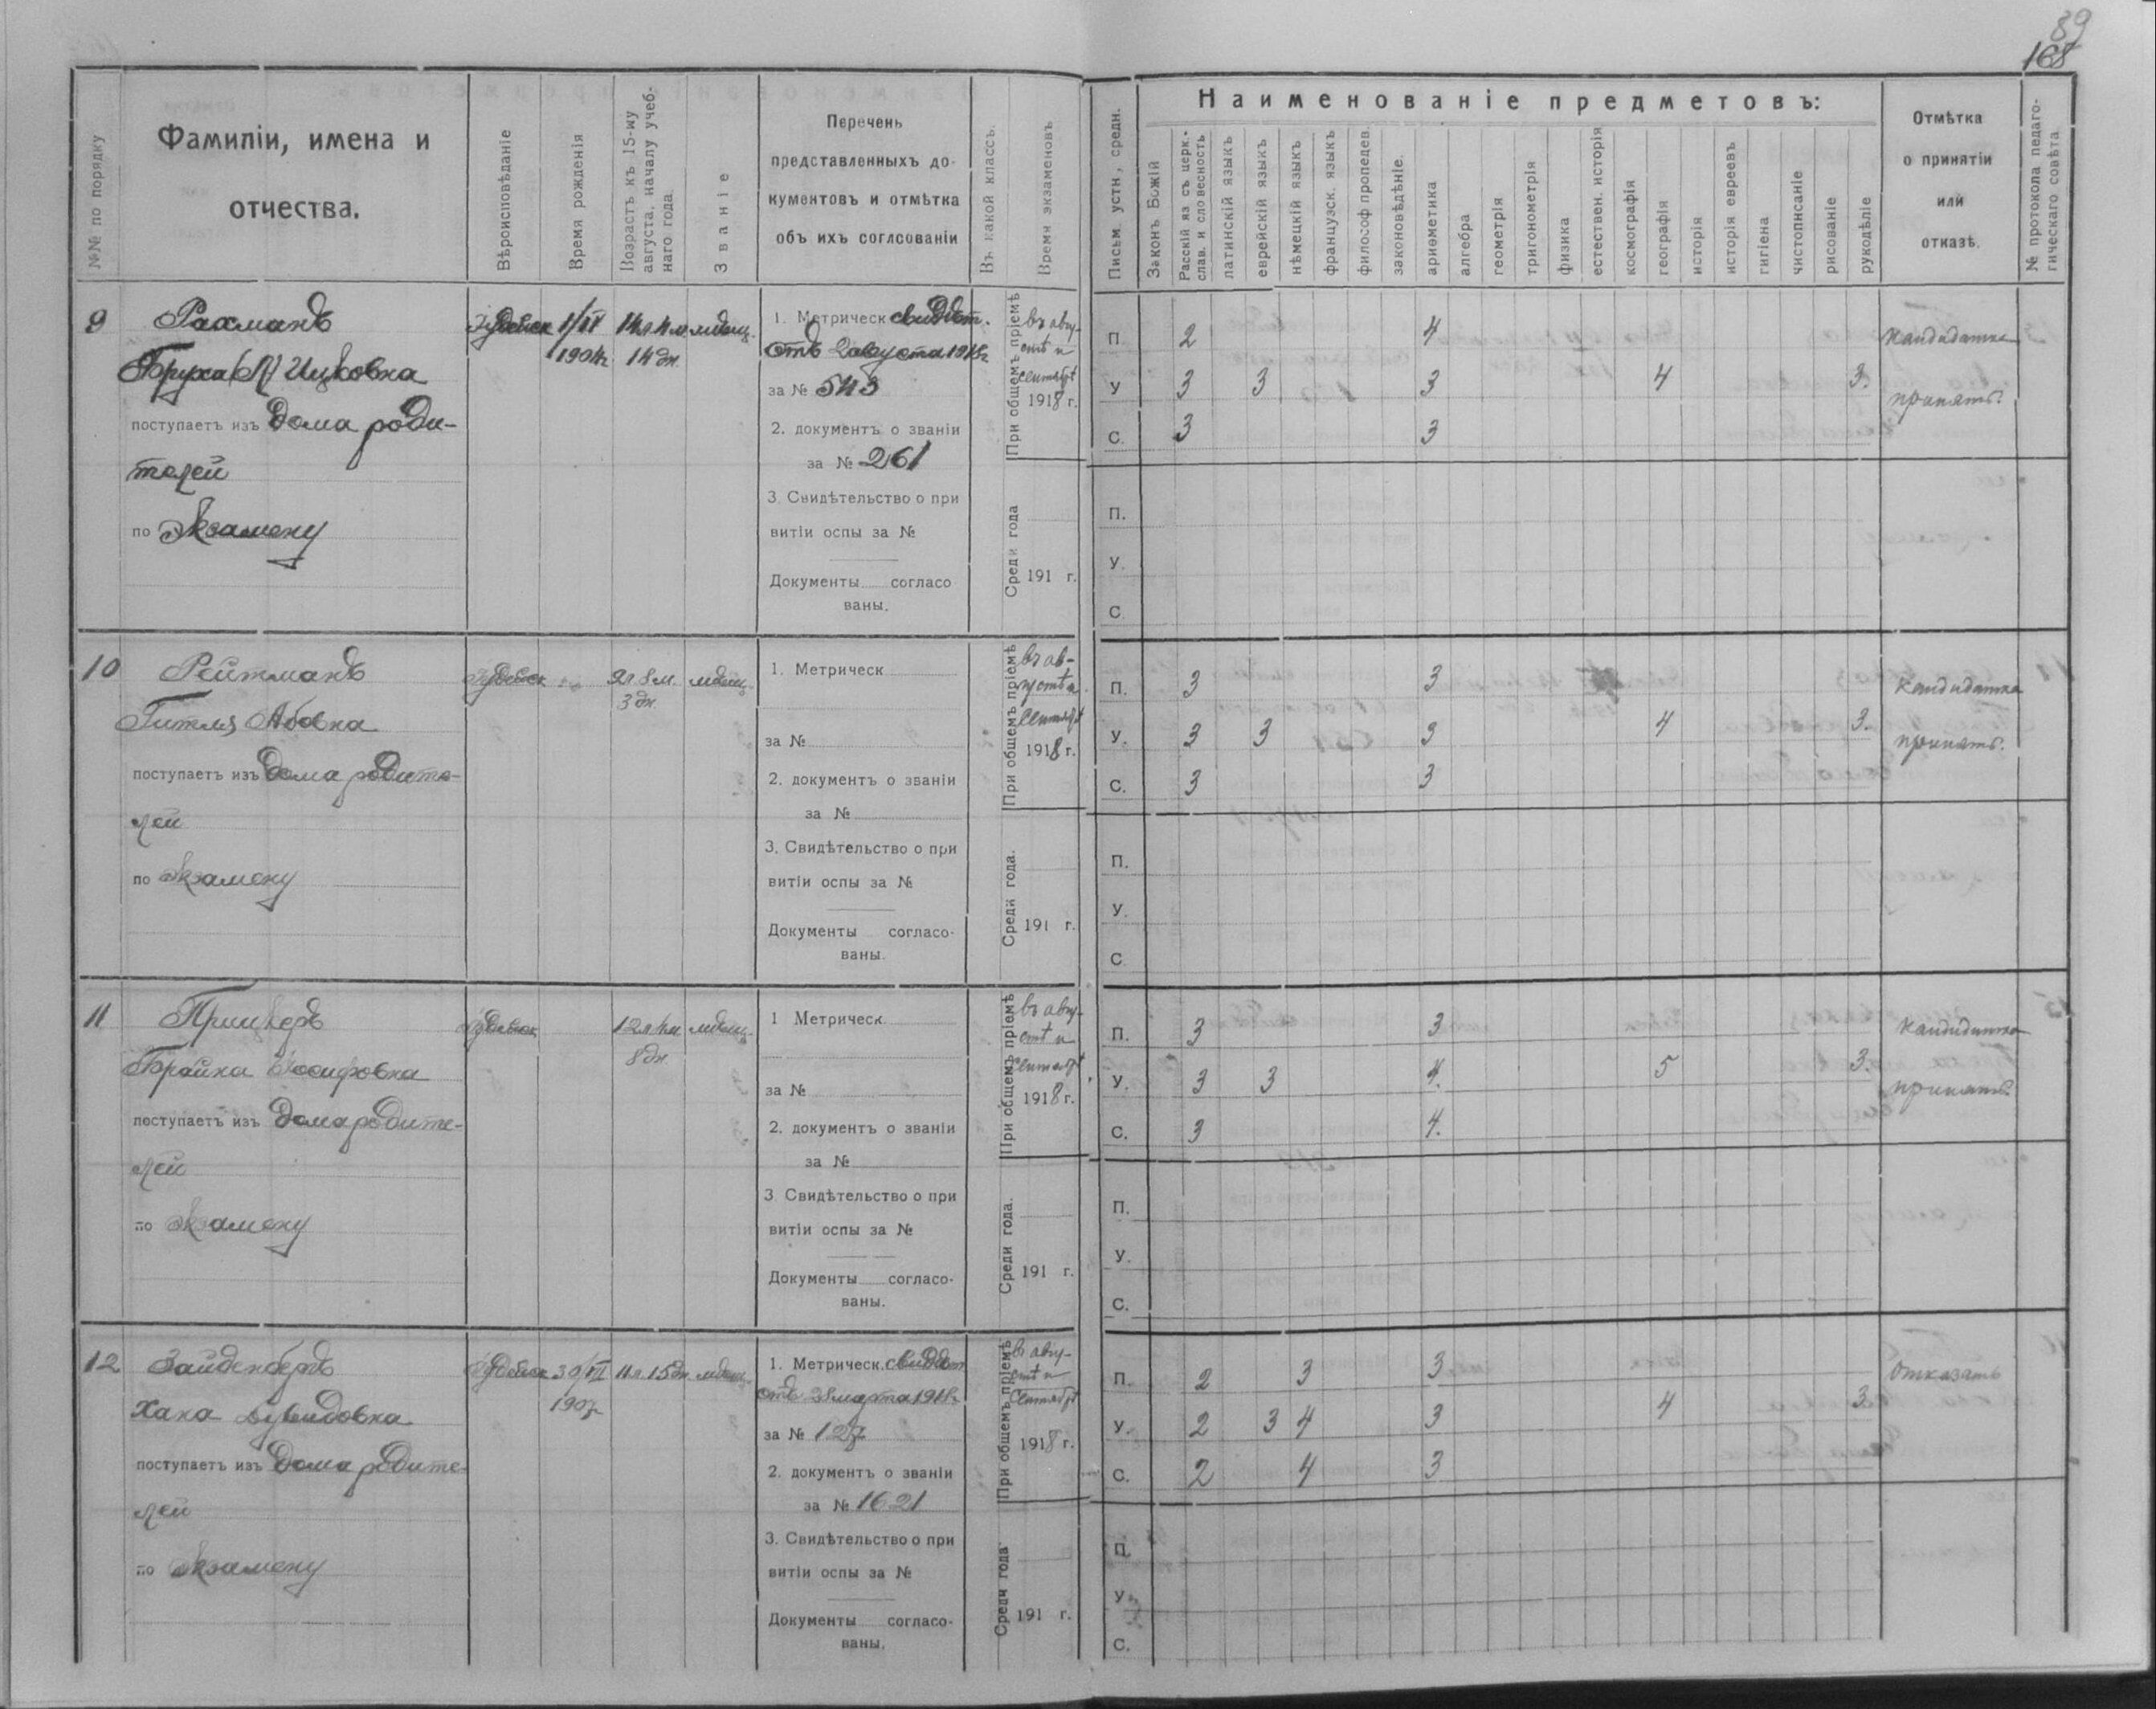 89
168
№№ по порядку
Фамиліи, имена и
отчества.
Вѣроисповѣданіе
Время рожденія
Возрастъ къ 15-му
августа, началу учеб-
наго года.
Званіе
Перечень
представленныхъ до-
кументовъ и отмѣтка
объ ихъ соглсованіи
Въ какой классъ.
Время экзаменовъ
Письм. устн, средн.
Наименованіе предметовъ:
Законъ Божій
Расскій яз съ церк.-
слав. и сло весность
латинскій языкъ
еврейскій языкъ
нѣмецкій языкъ
французск. языкъ
философ пропедев.
законовѣдѣніе.
ариѳметика
алгебра
геометрія
тригонометрія
физика
естествен. исторія
космографія
географія
исторія
исторія евреевъ
гигіена
чистописаніе
рисованіе
рукодѣліе
Отмѣтка
о принятіи
или
отказѣ.
№ протокола педаго-
гическаго совѣта.
9
Рахманъ
Бруха Ицковна
поступаетъ изъ дома роди-
телей
по экзамену
Іудейск
1904г.
14л. 4м.
14 дн.
мѣщ.
1. Метрическ свидѣт.
отъ 2 августа 1918г.
за № 543
2. документъ о званіи
за № 261
3. Свидѣтельство о при
витіи оспы за №
Документы согласо
ваны.
При общемъ пріемѣ
въ авгу-
стѣ и
сентябрѣ
1918 г.
Среди года
191 г.
П. 2 4
У 3 3 3 4 3.
С. 3 3
кандидатка
принять.
П.
У.
С.
10
Рейтманъ
Гитля Абовна
поступаетъ изъ дома родите-
лей
по экзамену
Іудейск
8м.
3 дн.
мѣщ.
1. Метрическ
за №
2. документъ о званіи
за №
3. Свидѣтельство о при
витіи оспы за №
Документы согласо-
ваны.
При общемъ пріемѣ
въ ав-
густѣ и
сентябрѣ
1918 г.
Среди года.
191 г.
П. 3 3
У. 3 3 3 4 3.
С. 3 3
кандидатка
принять.
П.
У.
С
11
Прицкеръ
Брайна Іосифовна
поступаетъ изъ дома родите-
лей
по экзамену
Іудейск
8 дн.
мѣщ.
1 Метрическ
за №
2. документъ о званіи
за №
3. Свидѣтельство о при
витіи оспы за №
Документы согласо-
ваны.
При общемъ пріемѣ
въ авгу-
стѣ и
сентябрѣ
1918 г.
Среди года.
191 г.
П. 3 3
У. 3 3 4. 5 3.
С. 3 4.
кандидатка
принять.
П.
У.
С.
12
Зайденбергъ
Хана Дувидовна
поступаетъ изъ дома родите-
лей
по экзамену
Іудейск
1907г.
11л. 15дн.
мѣщ.
1. Метрическ. свидѣт
отъ 28 марта 1918г.
за № 127
2. документъ о званіи
за № 1621
3. Свидѣтельство о при
витіи оспы за №
Документы согласо-
ваны.
При общемъ пріемѣ
въ авгу-
стѣ и
сентябрѣ
1918 г.
Среди года
191 г.
П. 2 3 3
У. 2 3 4 3 4 3.
С. 2 4 3
отказать
П.
У.
С.